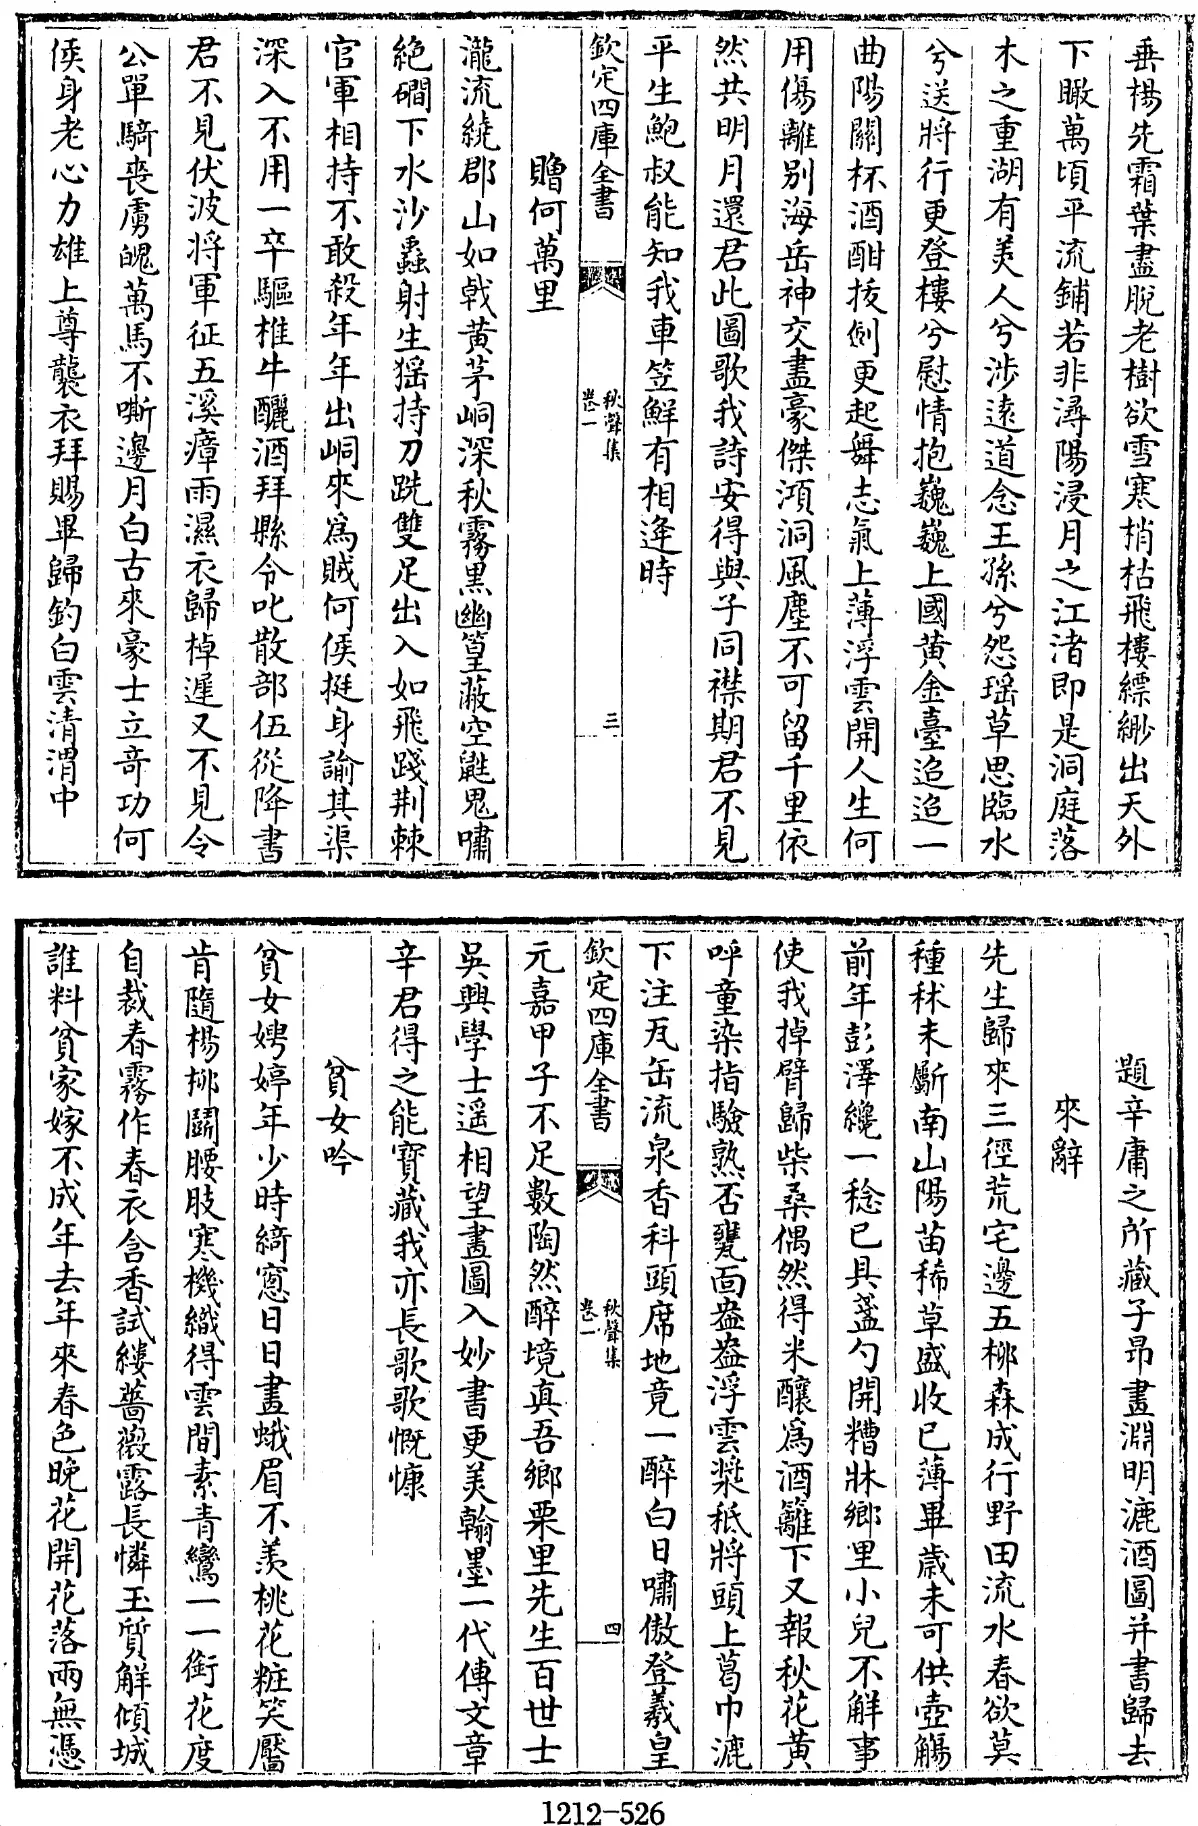 垂楊先霜葉盡脫老樹欲雪寒梢枯飛樓縹緲出天外
下瞰萬頃平流鋪若非潯陽浸月之江渚即是洞庭落
木之重湖有美人兮涉遠道念王孫兮怨瑶草思臨水
兮送將行更登樓兮慰情抱巍巍上國黄金臺迢迢一
曲陽關杯酒酣拔劍更起舞志氣上薄浮雲開人生何
用傷離别海岳神交盡豪傑澒洞風塵不可留千里依
然共明月還君此圖歌我詩安得與子同襟期君不見
平生鮑叔能知我車笠鮮有相逢時
欽定四庫全書
秋聲集
卷一
三
贈何萬里
瀧流繞郡山如戟黄茅峒深秋霧黑幽篁蔽空鼪鬼嘯
絶磵下水沙蟲射生猺持刀跣雙足出入如飛踐荆棘
官軍相持不敢殺年年出峒來為賊何侯挺身諭其渠
深入不用一卒驅椎牛釃酒拜縣令叱散部伍從降書
君不見伏波將軍征五溪瘴雨濕衣歸棹遲又不見令
公單騎喪虜魄萬馬不嘶邊月白古來豪士立奇功何
侯身老心力雄上尊襲衣拜賜畢歸釣白雲清渭中
題辛庸之所藏子昂畫淵明漉酒圖并書歸去
來辭
先生歸來三徑荒宅邊五柳森成行野田流水春欲莫
種秫未斸南山陽苗稀草盛收已薄畢歲未可供壺觴
前年彭澤纔一稔已具盞勺開糟牀鄉里小兒不解事
使我掉臂歸柴桑偶然得米釀為酒籬下又報秋花黄
呼童染指驗熟否甕面盎盎浮雲漿秪將頭上葛巾漉
下注瓦缶流泉香科頭席地竟一醉白日嘯傲登羲皇
欽定四庫全書
秋聲集
卷一
四
元嘉甲子不足數陶然醉境真吾鄉栗里先生百世士
吳興學士遥相望畫圖入妙書更美翰墨一代傳文章
辛君得之能寶藏我亦長歌歌慨慷
貧女吟
貧女娉婷年少時綺窻日日畫蛾眉不羨桃花粧笑靨
肯隨楊柳鬬腰肢寒機織得雲間素青鸞一一銜花度
自裁春霧作春衣含香試縷薔薇露長憐玉質解傾城
誰料貧家嫁不成年去年來春色晚花開花落兩無憑
1212-526